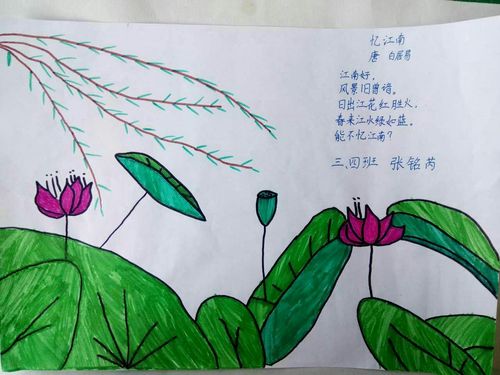 忆江南
唐 白居易
江南好，
风景旧曾谙。
日出江花红胜火，
春来江水绿如蓝。
能不忆江南？
三、四班 张铭芮